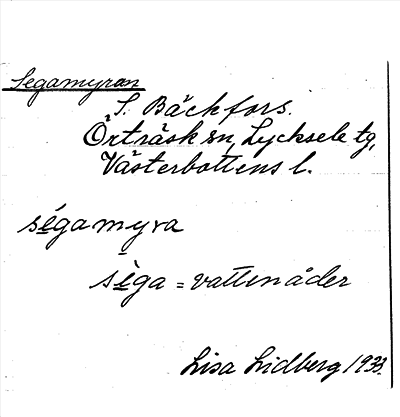 Segamyran
S. Bäckfors.
Örträsk sn, Lycksele tg,
Västerbottens l.
ségamyra
sèga = vattenåder
Lisa Lidberg 1933.